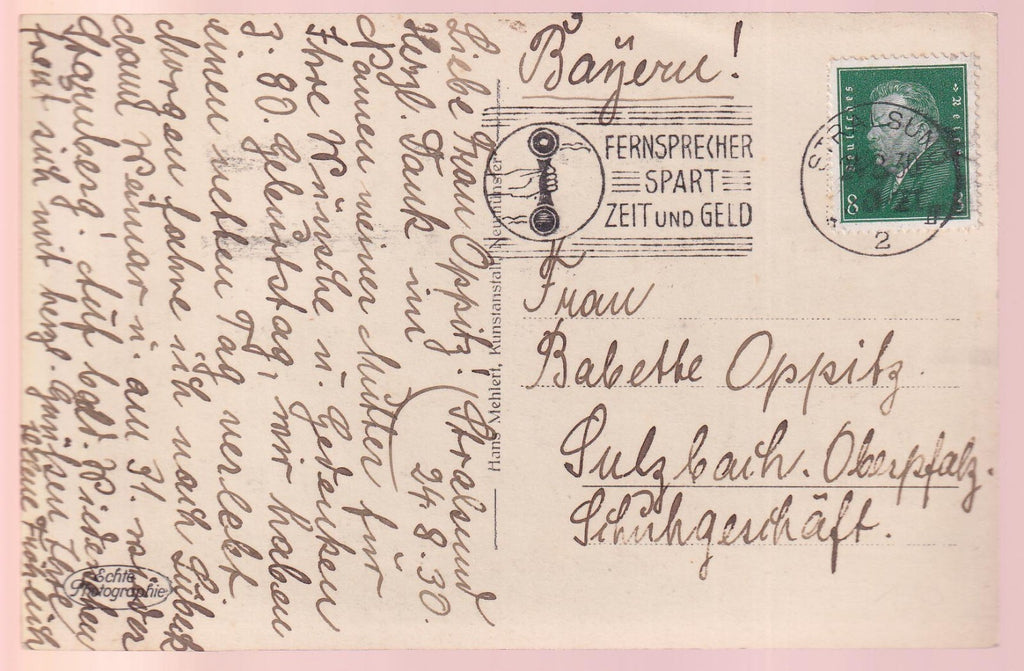 Liebe Frau Oppitz! (Stralsund
24.8.30.
Herzl. Dank im
Namen meiner Mutter für
Ihre Wünsche u. Gedenken
z. 80. Geburtstag, wir haben
einen netten Tag verlebt
Morgen fahre ich nach Lübeck
dann Weimar u. am 31. wieder
Starnberg. Auf bald. Wiedersehen
freut sich mit herzl. Grüßen Ihre
Helene Fröhlich
Echte
Photographie
Hans Mehlert, Kunstanstalt, Neumünster
Bayern!
FERNSPRECHER
SPART
ZEIT UND GELD
STRALSUND
2
Deutsches Reich
8 8
Frau
Babette Oppitz.
Sulzbach. Oberpfalz.
Schuhgeschäft.